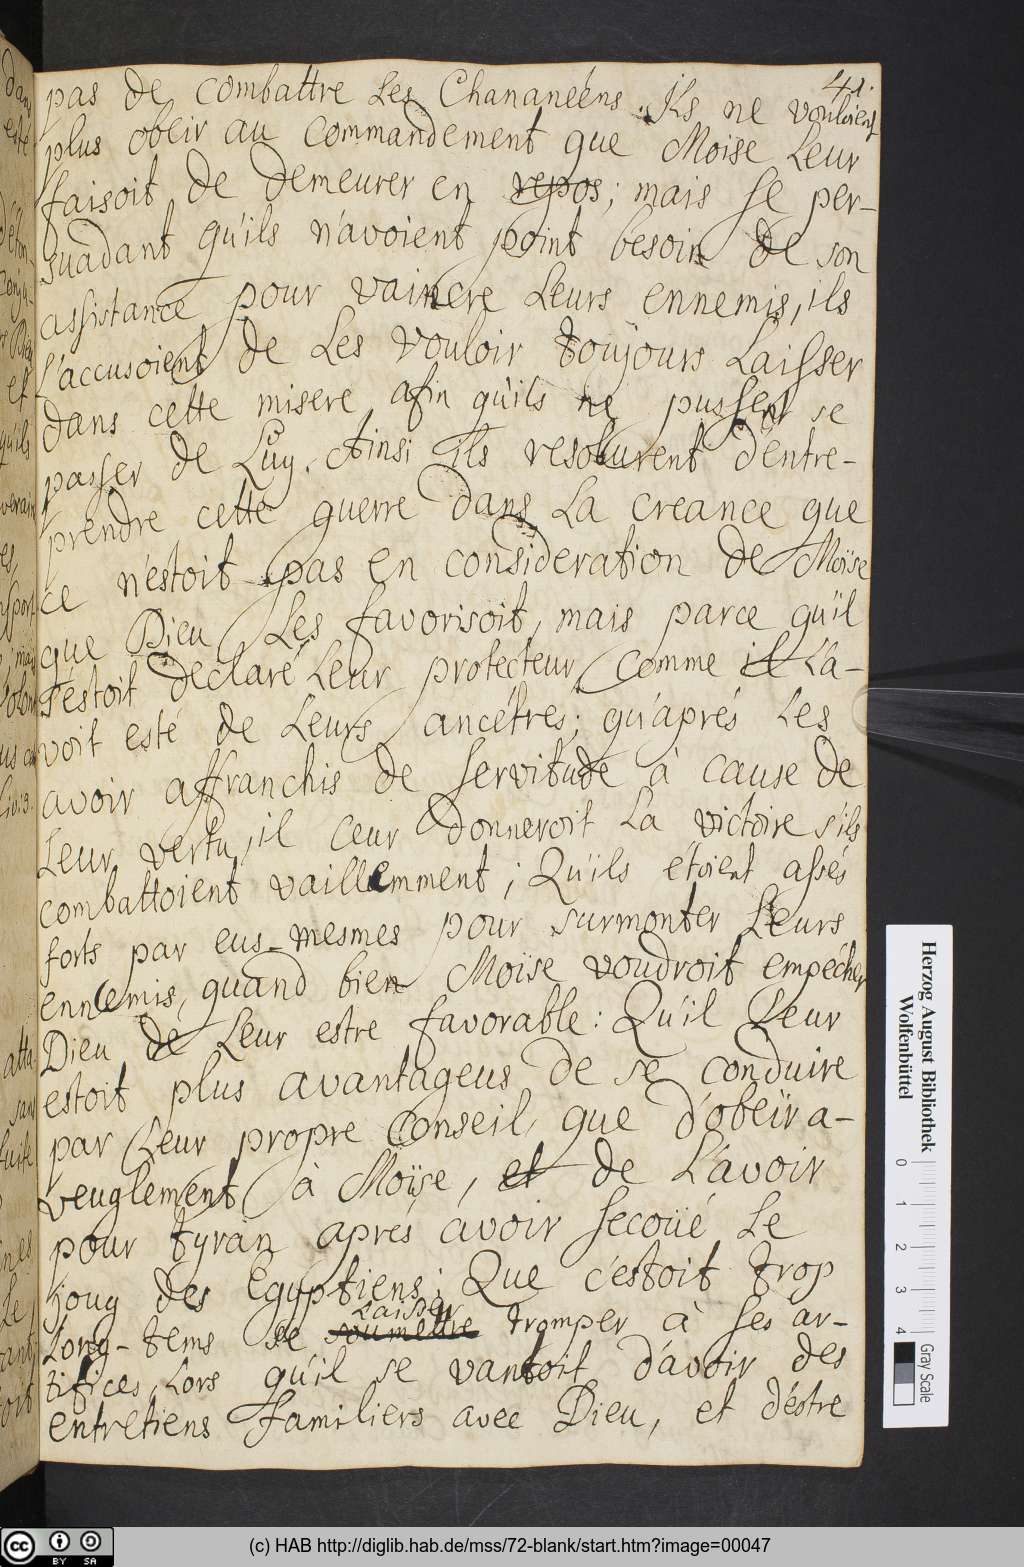 41.
pas de combattre Les Chananeéns. Ils ne vouloient
plus obeir au commandement que Moise Leur
faisoit de demeurer en repos; mais se per-
suadant qu'ils n'avoient point besoin de son
assistance pour vaincre Leurs ennemis, ils
L'accusoient de Les vouloir toujours Laisser
dans cette misere afin qu'ils ne pussent se
passer de Luy. Ainsi ils resolurent d'entre-
prendre cette guerre dans La creance que
ce n'estoit pas en consideration de Moïse
que Dieu Les favorisoit, mais parce qu'il
s'estoit declaré Leur protecteur comme il L'a-
voit esté de Leurs ancétres; qu'aprés Les
avoir affranchis de servitude à cause de
Leur vertu, il Leur donneroit La victoire s'ils
combattoient vaillemment; Qu'ils étoient assés
forts par eus-mesmes pour surmonter Leurs
ennemis, quand bien Moïse voudroit empécher
Dieu de Leur estre favorable: Qu'il Leur
estoit plus avantageus de se conduire
par Leur propre conseil, que d'obeïr a-
veuglement à Moïse, et de L'avoir
pour tyran aprés avoir secoüé Le
joug des Egyptiens; Que c'estoit trop
Laisser
Long-tems se soumettre tromper à ses ar-
tifices, Lors qu'il se vantoit d'avoir des
entretiens familiers avec Dieu, et d'éstre
Herzog August Bibliothek
Wolfenbüttel
0 1 2 3 4
Gray Scale
cc BY SA
(c) HAB http://diglib.hab.de/mss/72-blank/start.htm?image=00047